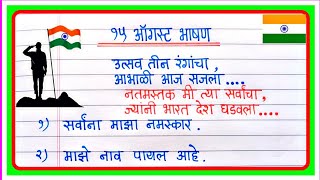 १५ ऑगस्ट भाषण
उत्सव तीन रंगांचा,
आभाळी आज सजला....
नतमस्तक मी त्या सर्वांचा,
ज्यांनी भारत देश घडवला....
१) सर्वांना माझा नमस्कार.
२) माझे नाव पायल आहे.